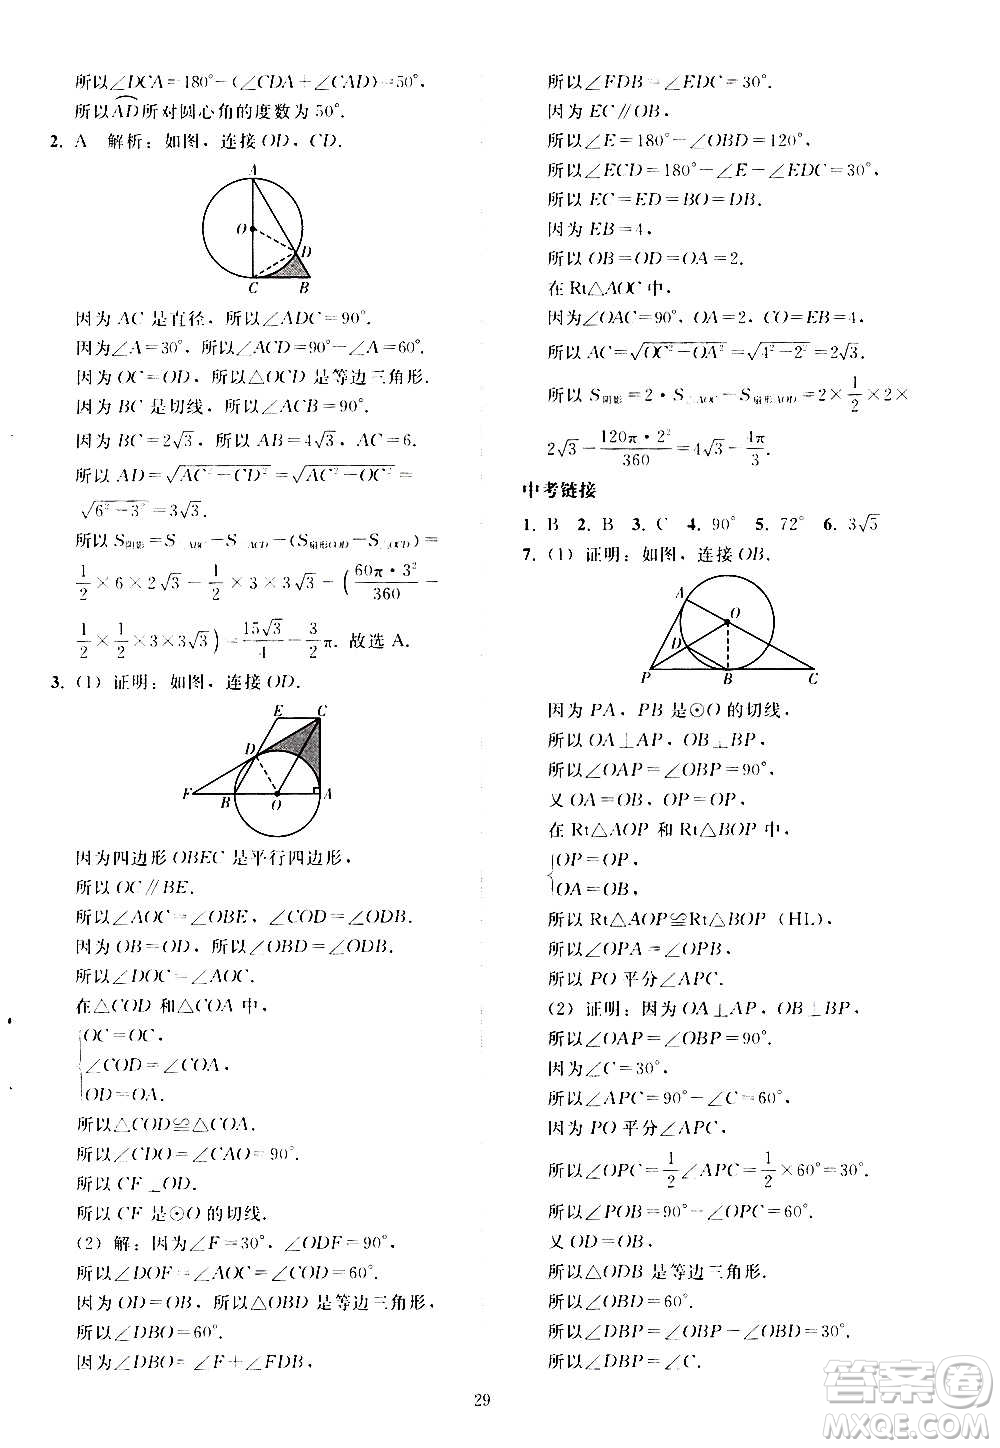 所以∠DCA=180°-(∠CDA+∠CAD)=50°.
所以AD所对圆心角的度数为50°.
2. A 解析:如图,连接OD,CD.
A
O
D
C B
因为AC是直径,所以∠ADC=90°.
因为∠A=30°,所以∠ACD=90°-∠A=60°.
因为OC=OD,所以△OCD是等边三角形.
因为BC是切线,所以∠ACB=90°.
因为BC=2√3,所以AB=4√3,AC=6.
所以AD=√(AC²-CD²)=√(AC²-OC²)=
√(6²-3²)=3√3.
所以S阴影=S△ABC-S△ACD-(S扇形COD-S△OCD)=
1/2×6×2√3-1/2×3×3√3-(60π·3²/360-
1/2×1/2×3×3√3)=15√3/4-3/2π.故选A.
3. (1)证明:如图,连接OD.
E C
D
F B O A
因为四边形OBEC是平行四边形,
所以OC∥BE.
所以∠AOC=∠OBE,∠COD=∠ODB.
因为OB=OD,所以∠OBD=∠ODB.
所以∠DOC=∠AOC.
在△COD和△COA中,
OC=OC,
∠COD=∠COA,
OD=OA.
所以△COD≌△COA.
所以∠CDO=∠CAO=90°.
所以CF⊥OD.
所以CF是⊙O的切线.
(2)解:因为∠F=30°,∠ODF=90°,
所以∠DOF=∠AOC=∠COD=60°.
因为OD=OB,所以△OBD是等边三角形,
所以∠DBO=60°.
因为∠DBO=∠F+∠FDB,
所以∠FDB=∠EDC=30°.
因为EC∥OB,
所以∠E=180°-∠OBD=120°,
所以∠ECD=180°-∠E-∠EDC=30°,
所以EC=ED=BO=DB.
因为EB=4,
所以OB=OD=OA=2.
在Rt△AOC中,
因为∠OAC=90°,OA=2,CO=EB=4,
所以AC=√(OC²-OA²)=√(4²-2²)=2√3.
所以S阴影=2·S△AOC-S扇形AOD=2×1/2×2×
2√3-120π·2²/360=4√3-4π/3.
中考链接
1. B 2. B 3. C 4. 90° 5. 72° 6. 3√5
7. (1)证明:如图,连接OB.
A
O
D
P B C
因为PA,PB是⊙O的切线,
所以OA⊥AP,OB⊥BP,
所以∠OAP=∠OBP=90°,
又OA=OB,OP=OP,
在Rt△AOP和Rt△BOP中,
OP=OP,
OA=OB,
所以Rt△AOP≌Rt△BOP(HL),
所以∠OPA=∠OPB,
所以PO平分∠APC.
(2)证明:因为OA⊥AP,OB⊥BP,
所以∠OAP=∠OBP=90°.
因为∠C=30°,
所以∠APC=90°-∠C=60°,
因为PO平分∠APC,
所以∠OPC=1/2∠APC=1/2×60°=30°,
所以∠POB=90°-∠OPC=60°.
又OD=OB,
所以△ODB是等边三角形.
所以∠OBD=60°.
所以∠DBP=∠OBP-∠OBD=30°,
所以∠DBP=∠C.
29
答案圈
MXQE.COM